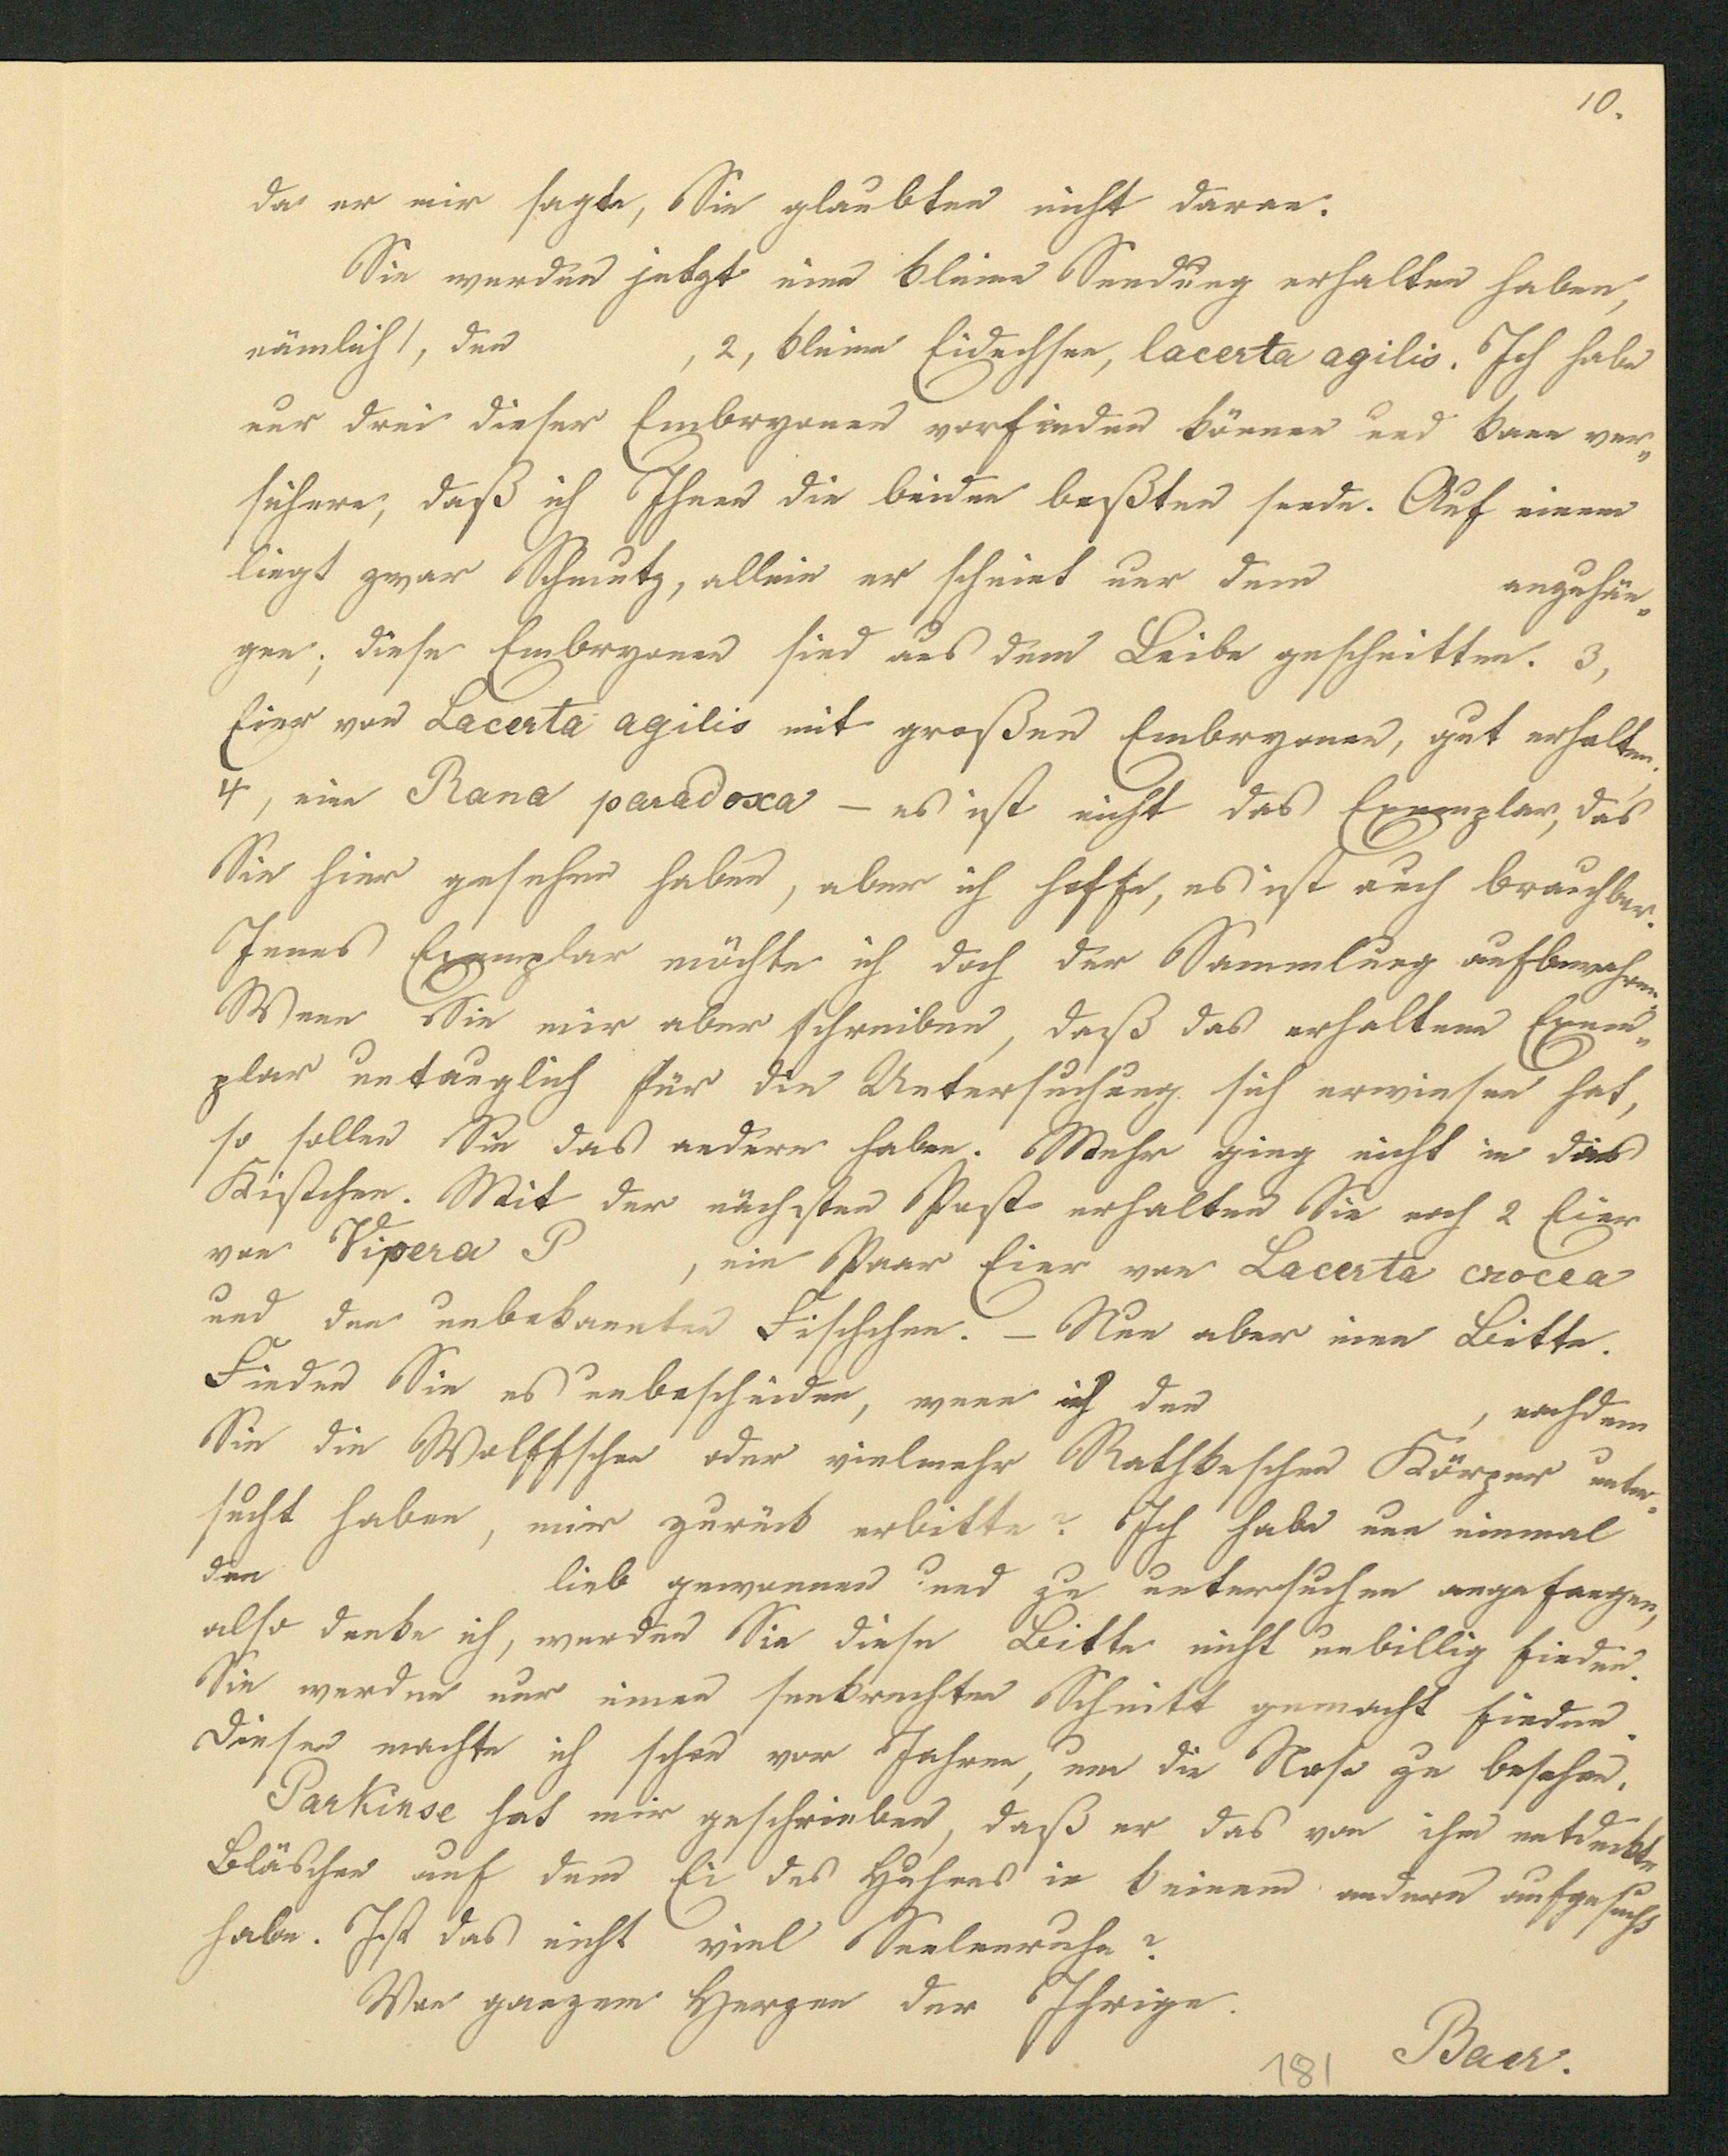 10.
da er mir sagte, Sie glaubten nicht daran.
Sie werden jetzt eine kleine Sendung erhalten haben,
nämlich 1, den , 2, kleine Eidechsen, lacerta agilis. Ich habe
nur drei dieser Embryonen vorfinden können und kann ver„
sichern, daß ich Ihnen die beiden beßten sende. Auf einem
liegt zwar Schmutz, allein er scheint nur dem anzuhän„
gen; diese Embryonen sind aus dem Leibe geschnitten. 3,
Eier von Lacerta agilis mit großen Embryonen, gut erhalten.
4, eine Rana paradoxa – es ist nicht das Exemplar, das
Sie hier gesehen haben, aber ich hoffe, es ist auch brauchbar.
Jenes Exemplar möchte ich doch der Sammlung aufbewahren.
Wenn Sie mir aber schreiben, daß das erhaltene Exem„
plar untauglich für die Untersuchung sich erwiesen hat,
so sollen Sie das andere haben. Mehr ging nicht in das
Kistchen. Mit der nächsten Post erhalten Sie noch 2 Eier
von Vipera P , ein Paar Eier von Lacerta crocea
und den unbekannten Fischchen. – Nun aber eine Bitte.
Finden Sie es unbescheiden, wenn ich den , nachdem
Sie die Wolffschen oder vielmehr Rathkeschen Körper unter„
sucht haben, mir zurück erbitte? Ich habe nun einmal
den lieb gewonnen und zu untersuchen angefangen,
also denke ich, werden Sie diese Bitte nicht unbillig finden.
Sie werden nur einen senkrechten Schnitt gemacht finden.
Diesen machte ich schon vor Jahren, um die Nase zu besehen.
Parkinse hat mir geschrieben, daß er das von ihm entdeckte
Bläschen auf dem Ei des Huhnes in keinem andern aufgesucht
habe. Ist das nicht viel Seelenruhe?
Von ganzem Herzen der Ihrige.
Baer.
181